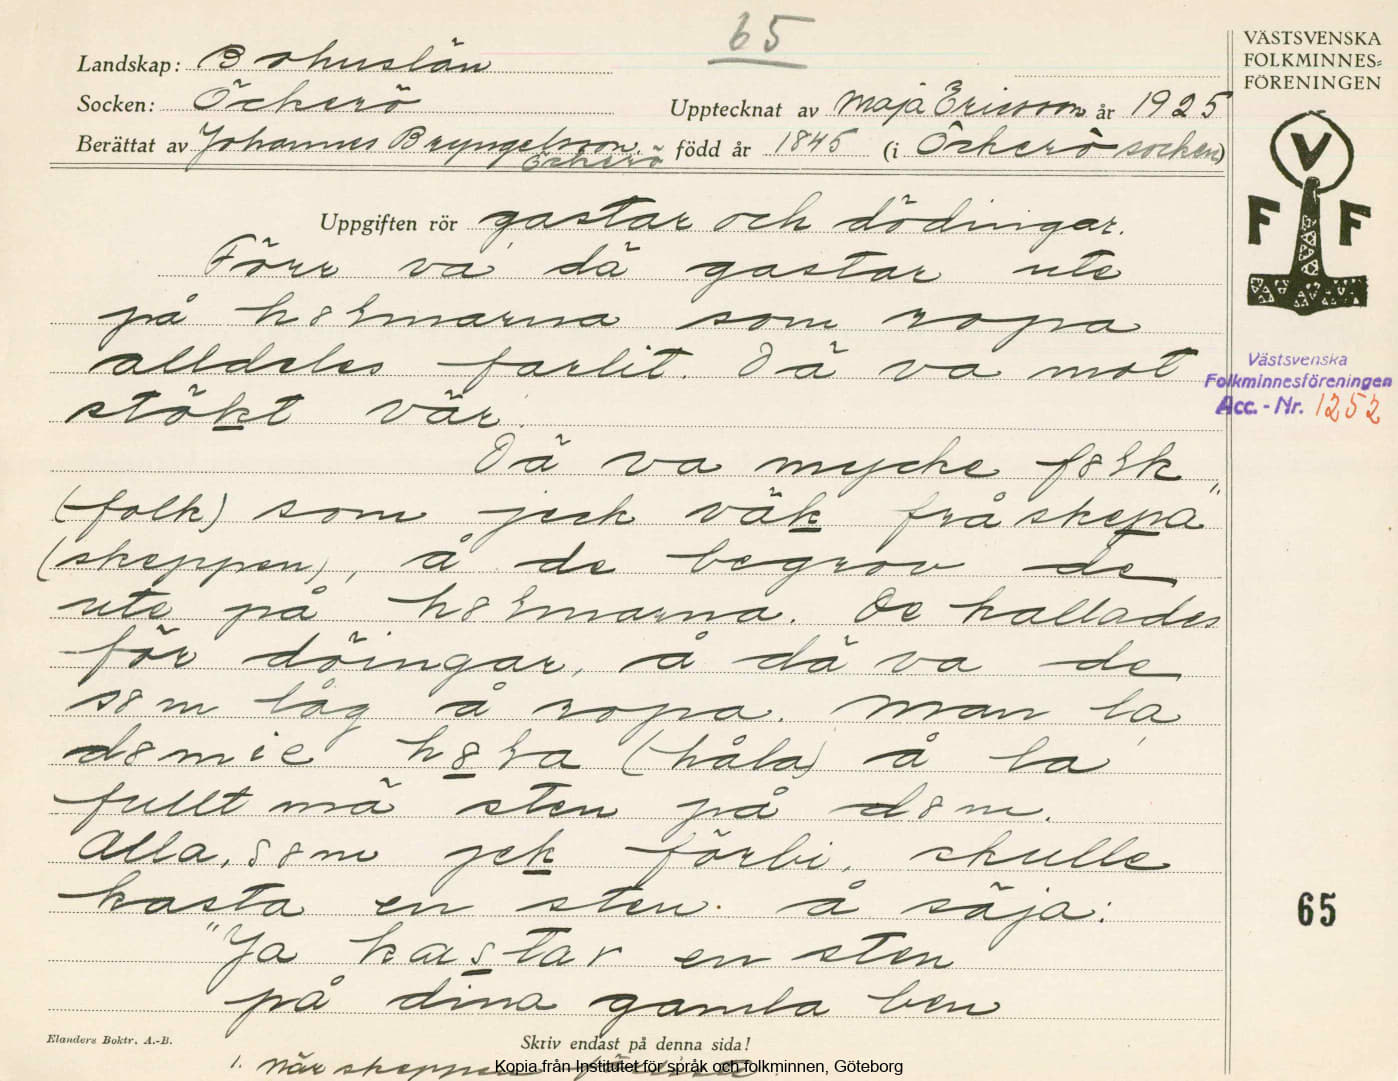 65
Landskap: Bohuslän
Socken: Öckerö
Upptecknat av Maja Ericsson år 1925
Berättat av Johannes Bryngelsson
Öckerö
född år 1845 (i Öckerö socken)
VÄSTSVENSKA
FOLKMINNES=
FÖRENINGEN
V
F F
Uppgiften rör gastar och dödingar.
Förr va dä gastar ute
på h8lmarna som ropa
alldeles farlit. Dä va mot
stökt vär.
Dä va mycke f8lk
(folk) som jeck väk frå skepa"
(skeppen), å de begrov de
ute på h8lmarna. De kallades
för döingar, å dä va de
s8m låg å ropa. Man la
d8m i e h8la (håla) å la
fullt mä sten på d8m.
Alla, s8m jek förbi, skulle
kasta en sten å säja:
"Ja kastar en sten
på dina gamla ben
Västsvenska
Folkminnesföreningen
Acc. - Nr. 1252
65
Elanders Boktr. A.-B.
Skriv endast på denna sida!
1. När skeppen
Kopia från Institutet för språk och folkminnen, Göteborg